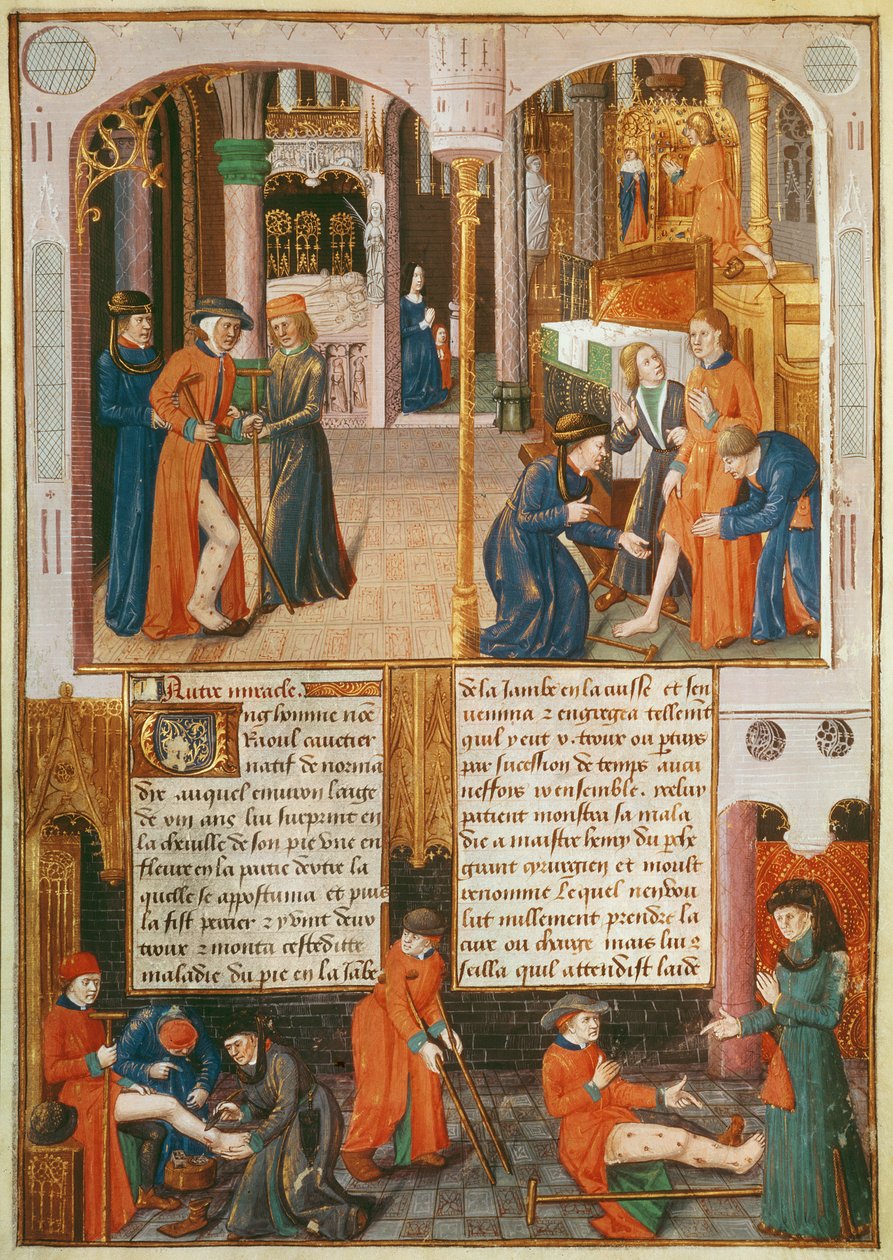 Autre miracle.
Ung homme nõe
Raoul cauetier
natif de norma
die auquel enuiron laage
de viii ans lui surprint en
la cheuille de son pie vne en
fleure en la partie deutre la
quelle se appostuma et puis
la fist percier ⁊ y vint deux
troux ⁊ monta ceste ditte
maladie du pie en la Jambe
de la Jambe en la cuisse et sen
uenima ⁊ engregea tellemẽt
quil y eut v. troux ou ꝑtuys
par sucession de temps aucu
neffois iv ensemble.
patient monstra sa mala
die a maistre henry du ꝑche
grant cyrurgien et moult
renomme Lequel nen vou
lut nullement prendre la
cure ou charge mais lui
seilla quil attendist laide